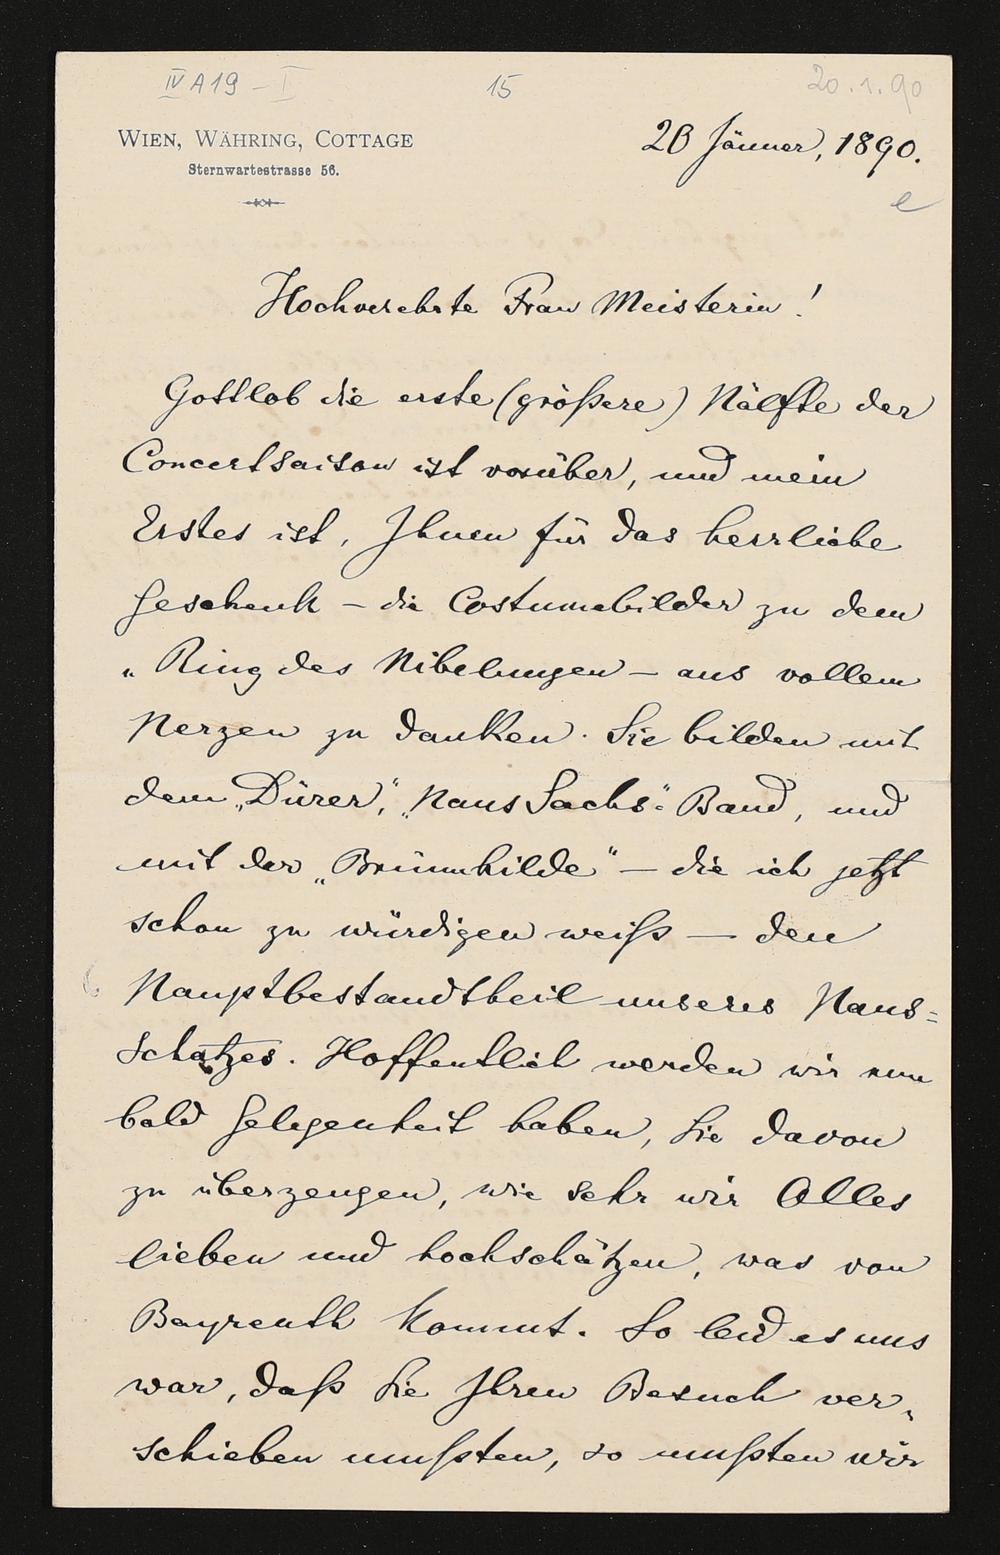 IV A 19 – I
15
20.1.90
WIEN, WÄHRING, COTTAGE
Sternwartestrasse 56.
20 Jänner, 1890.
e
Hochverehrte Frau Meisterin!
Gottlob die erste (größere) Hälfte der
Concertsaison ist vorüber, und mein
Erstes ist, Ihnen für das herrliche
Geschenk – die Costumebilder zu dem
„Ring des Nibelungen – aus vollem
Herzen zu danken. Sie bilden mit
dem „Dürer", „Hans Sachs"= Band, und
mit der „Brünnhilde" – die ich jetzt
schon zu würdigen weiß – den
Hauptbestandtheil unseres Haus=
schatzes. Hoffentlich werden wir nun
bald Gelegenheit haben, Sie davon
zu überzeugen, wie sehr wir Alles
lieben und hochschätzen, was von
Bayreuth kommt. So leid es uns
war, daß Sie Ihren Besuch ver„
schieben mußten, so mußten wir